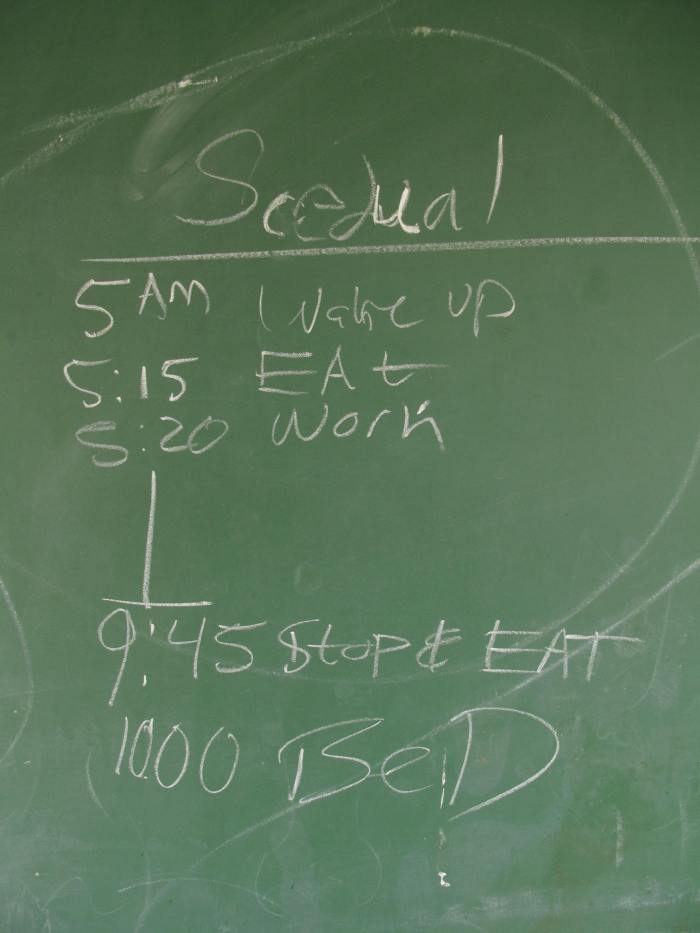 Scedual
5 AM Wake up
5:15 EAt
5:20 Work
9:45 Stop & EAT
10:00 BeD